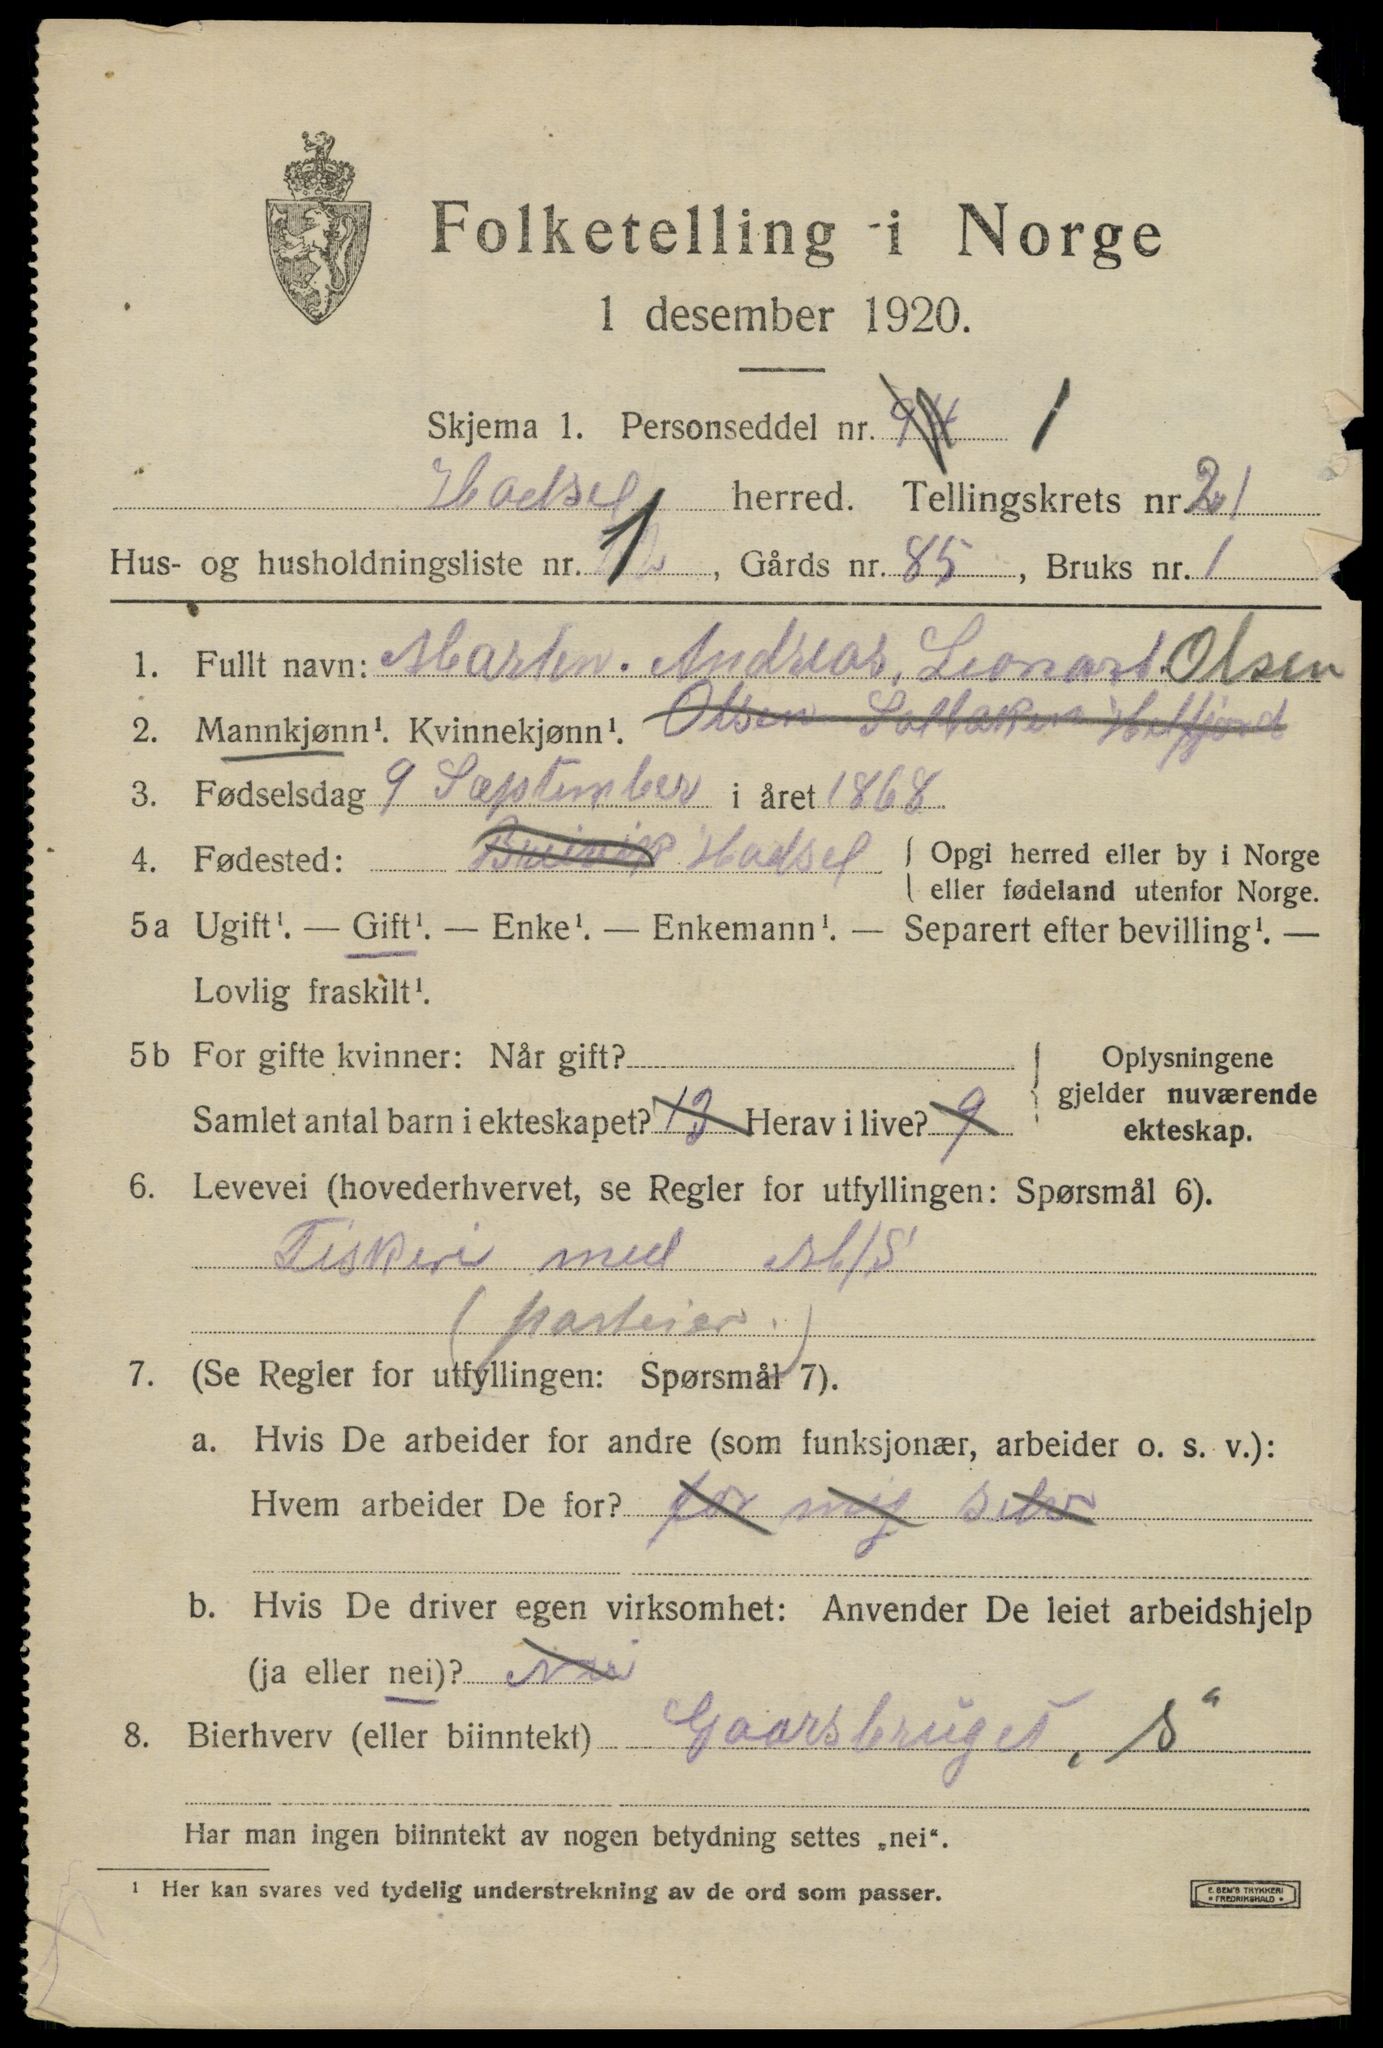 Folketelling i Norge
1 desember 1920.
Skjema 1. Personseddel nr. 1
Hadsel herred. Tellingskrets nr. 21
Hus- og husholdningsliste nr. 1, Gårds nr. 85, Bruks nr. 1
1. Fullt navn: Marten. Andreas. Leonart Olsen
2. Mannkjønn¹. Kvinnekjønn¹. Olsen
3. Fødselsdag 9 September i året 1868
4. Fødested: Breivik Hadsel { Opgi herred eller by i Norge
eller fødeland utenfor Norge.
5a Ugift¹. — Gift¹. — Enke¹. — Enkemann¹. — Separert efter bevilling¹. —
Lovlig fraskilt¹.
5b For gifte kvinner: Når gift?
Samlet antal barn i ekteskapet? 13 Herav i live? 9
Oplysningene
gjelder nuværende
ekteskap.
6. Levevei (hovederhvervet, se Regler for utfyllingen: Spørsmål 6).
Fiskeri med M/S
(parteier.)
7. (Se Regler for utfyllingen: Spørsmål 7).
a. Hvis De arbeider for andre (som funksjonær, arbeider o. s. v.):
Hvem arbeider De for? for mig selv
b. Hvis De driver egen virksomhet: Anvender De leiet arbeidshjelp
(ja eller nei)? Nei
8. Bierhverv (eller biinntekt) Gaarsbruget, S"
Har man ingen biinntekt av nogen betydning settes „nei“.
¹ Her kan svares ved tydelig understrekning av de ord som passer.
E. SEM'S TRYKKERI
• FREDRIKSHALD •